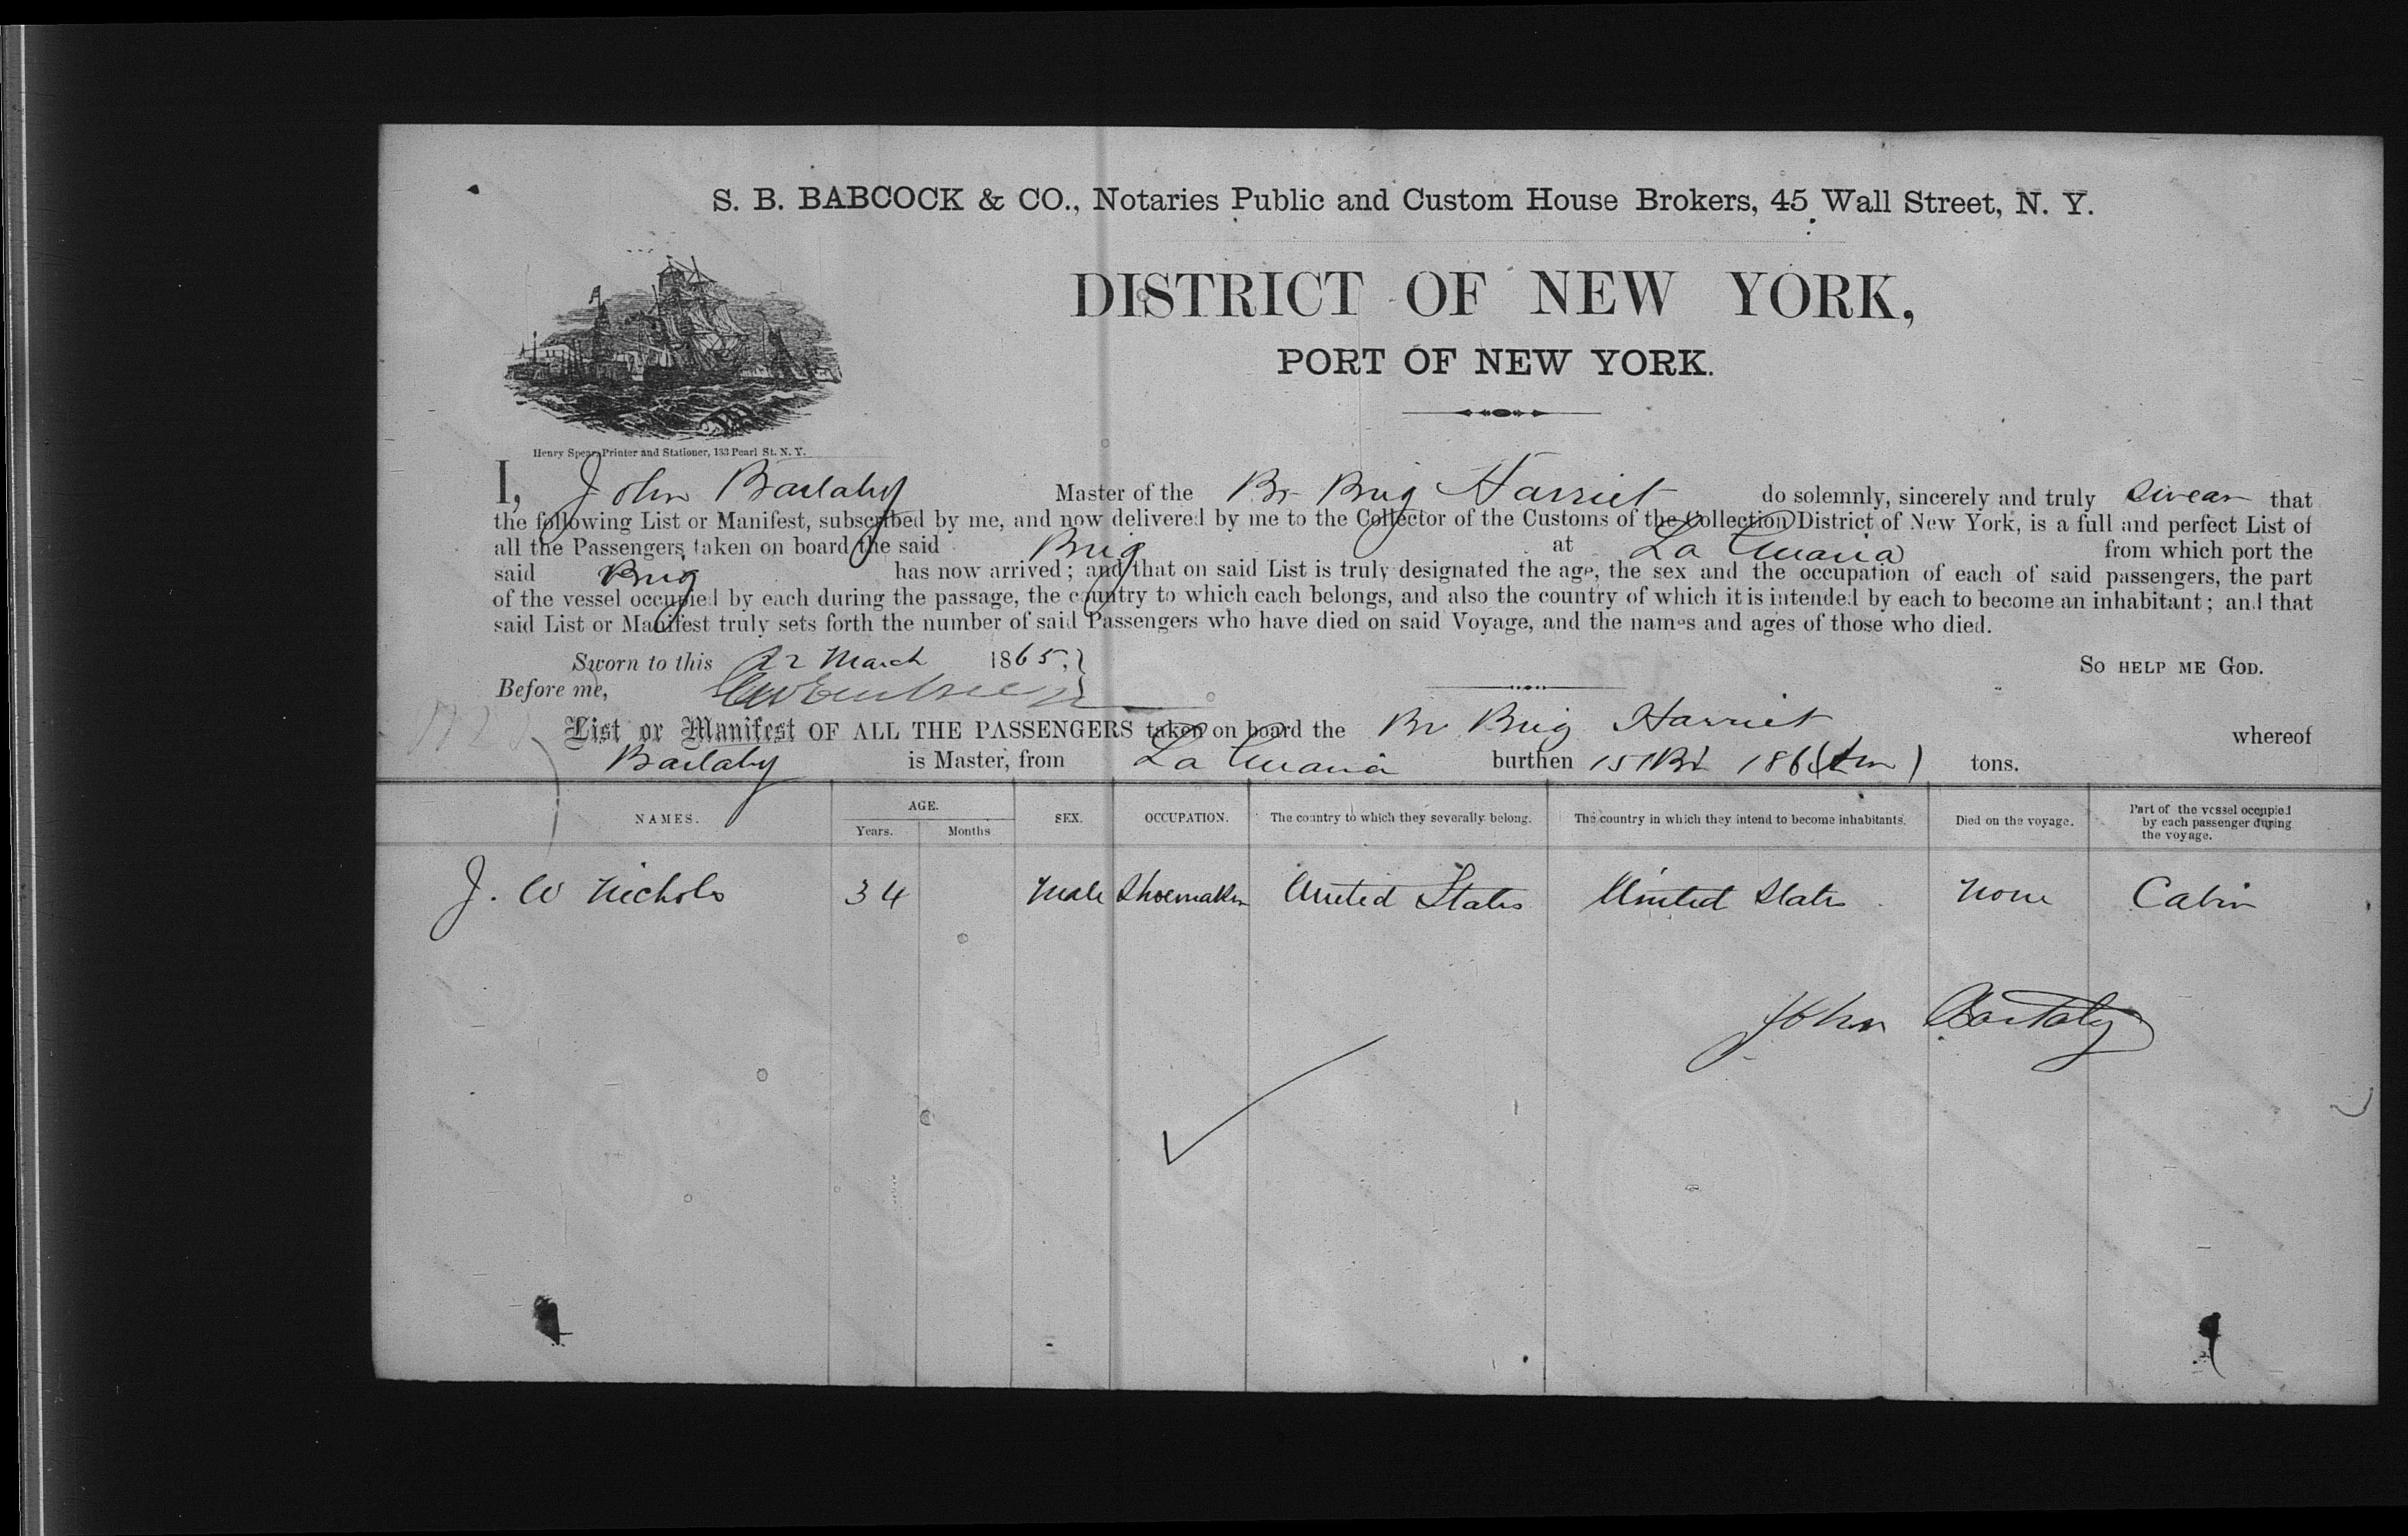 S. B. BABCOCK & CO., Notaries Public and Custom House Brokers, 45 Wall Street, N. Y.
DISTRICT OF NEW YORK,
PORT OF NEW YORK.
Henry Spear, Printer and Stationer, 133 Pearl St. N. Y.
I, John Bartaby Master of the Br Brig Harriet do solemnly, sincerely and truly swear that
the following List or Manifest, subscribed by me, and now delivered by me to the Collector of the Customs of the Collection District of New York, is a full and perfect List of
all the Passengers taken on board the said Brig at La Guaria from which port the
said Brig has now arrived; and that on said List is truly designated the age, the sex and the occupation of each of said passengers, the part
of the vessel occupied by each during the passage, the country to which each belongs, and also the country of which it is intended by each to become an inhabitant; and that
said List or Manifest truly sets forth the number of said Passengers who have died on said Voyage, and the names and ages of those who died.
Sworn to this 22 March 1865. SO HELP ME GOD.
Before me,
List or Manifest OF ALL THE PASSENGERS taken on board the Br Brig Harriet whereof
Bartaby is Master, from La Guaria burthen 151 Bt 186 tons.
NAMES. AGE. Years. Months SEX. OCCUPATION. The country to which they severally belong. The country in which they intend to become inhabitants. Died on the voyage. Part of the vessel occupied by each passenger during the voyage.
J. W Nichols 34 Male Shoemaker United States United States None Cabin
John Bartaby